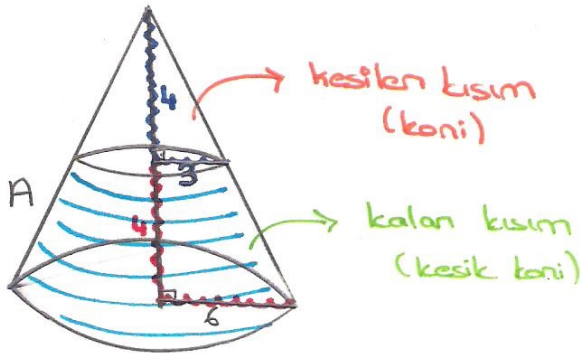 4
kesilen kısım
(koni)
3
A
4
kalan kısım
(kesik koni)
6